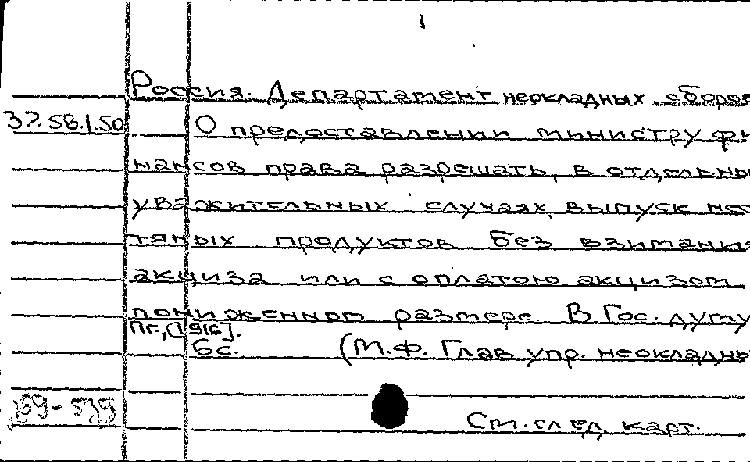 1
Россия. Департамент неокладных сборов
37.56.1.50
О предоставлении министру фи
нансов права разрешать, в отдельны
уважительных случаях, выпуск неф
тяных продуктов без взимания
акциза или с оплатою акцизом
пониженном размере. В Гос. думу
Пг., [1916].
6с. (М.Ф. Глав. упр. неокладны
69-539
См. след. карт.